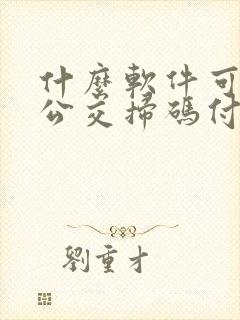 什麼軟件可
公交掃碼付
劉重才